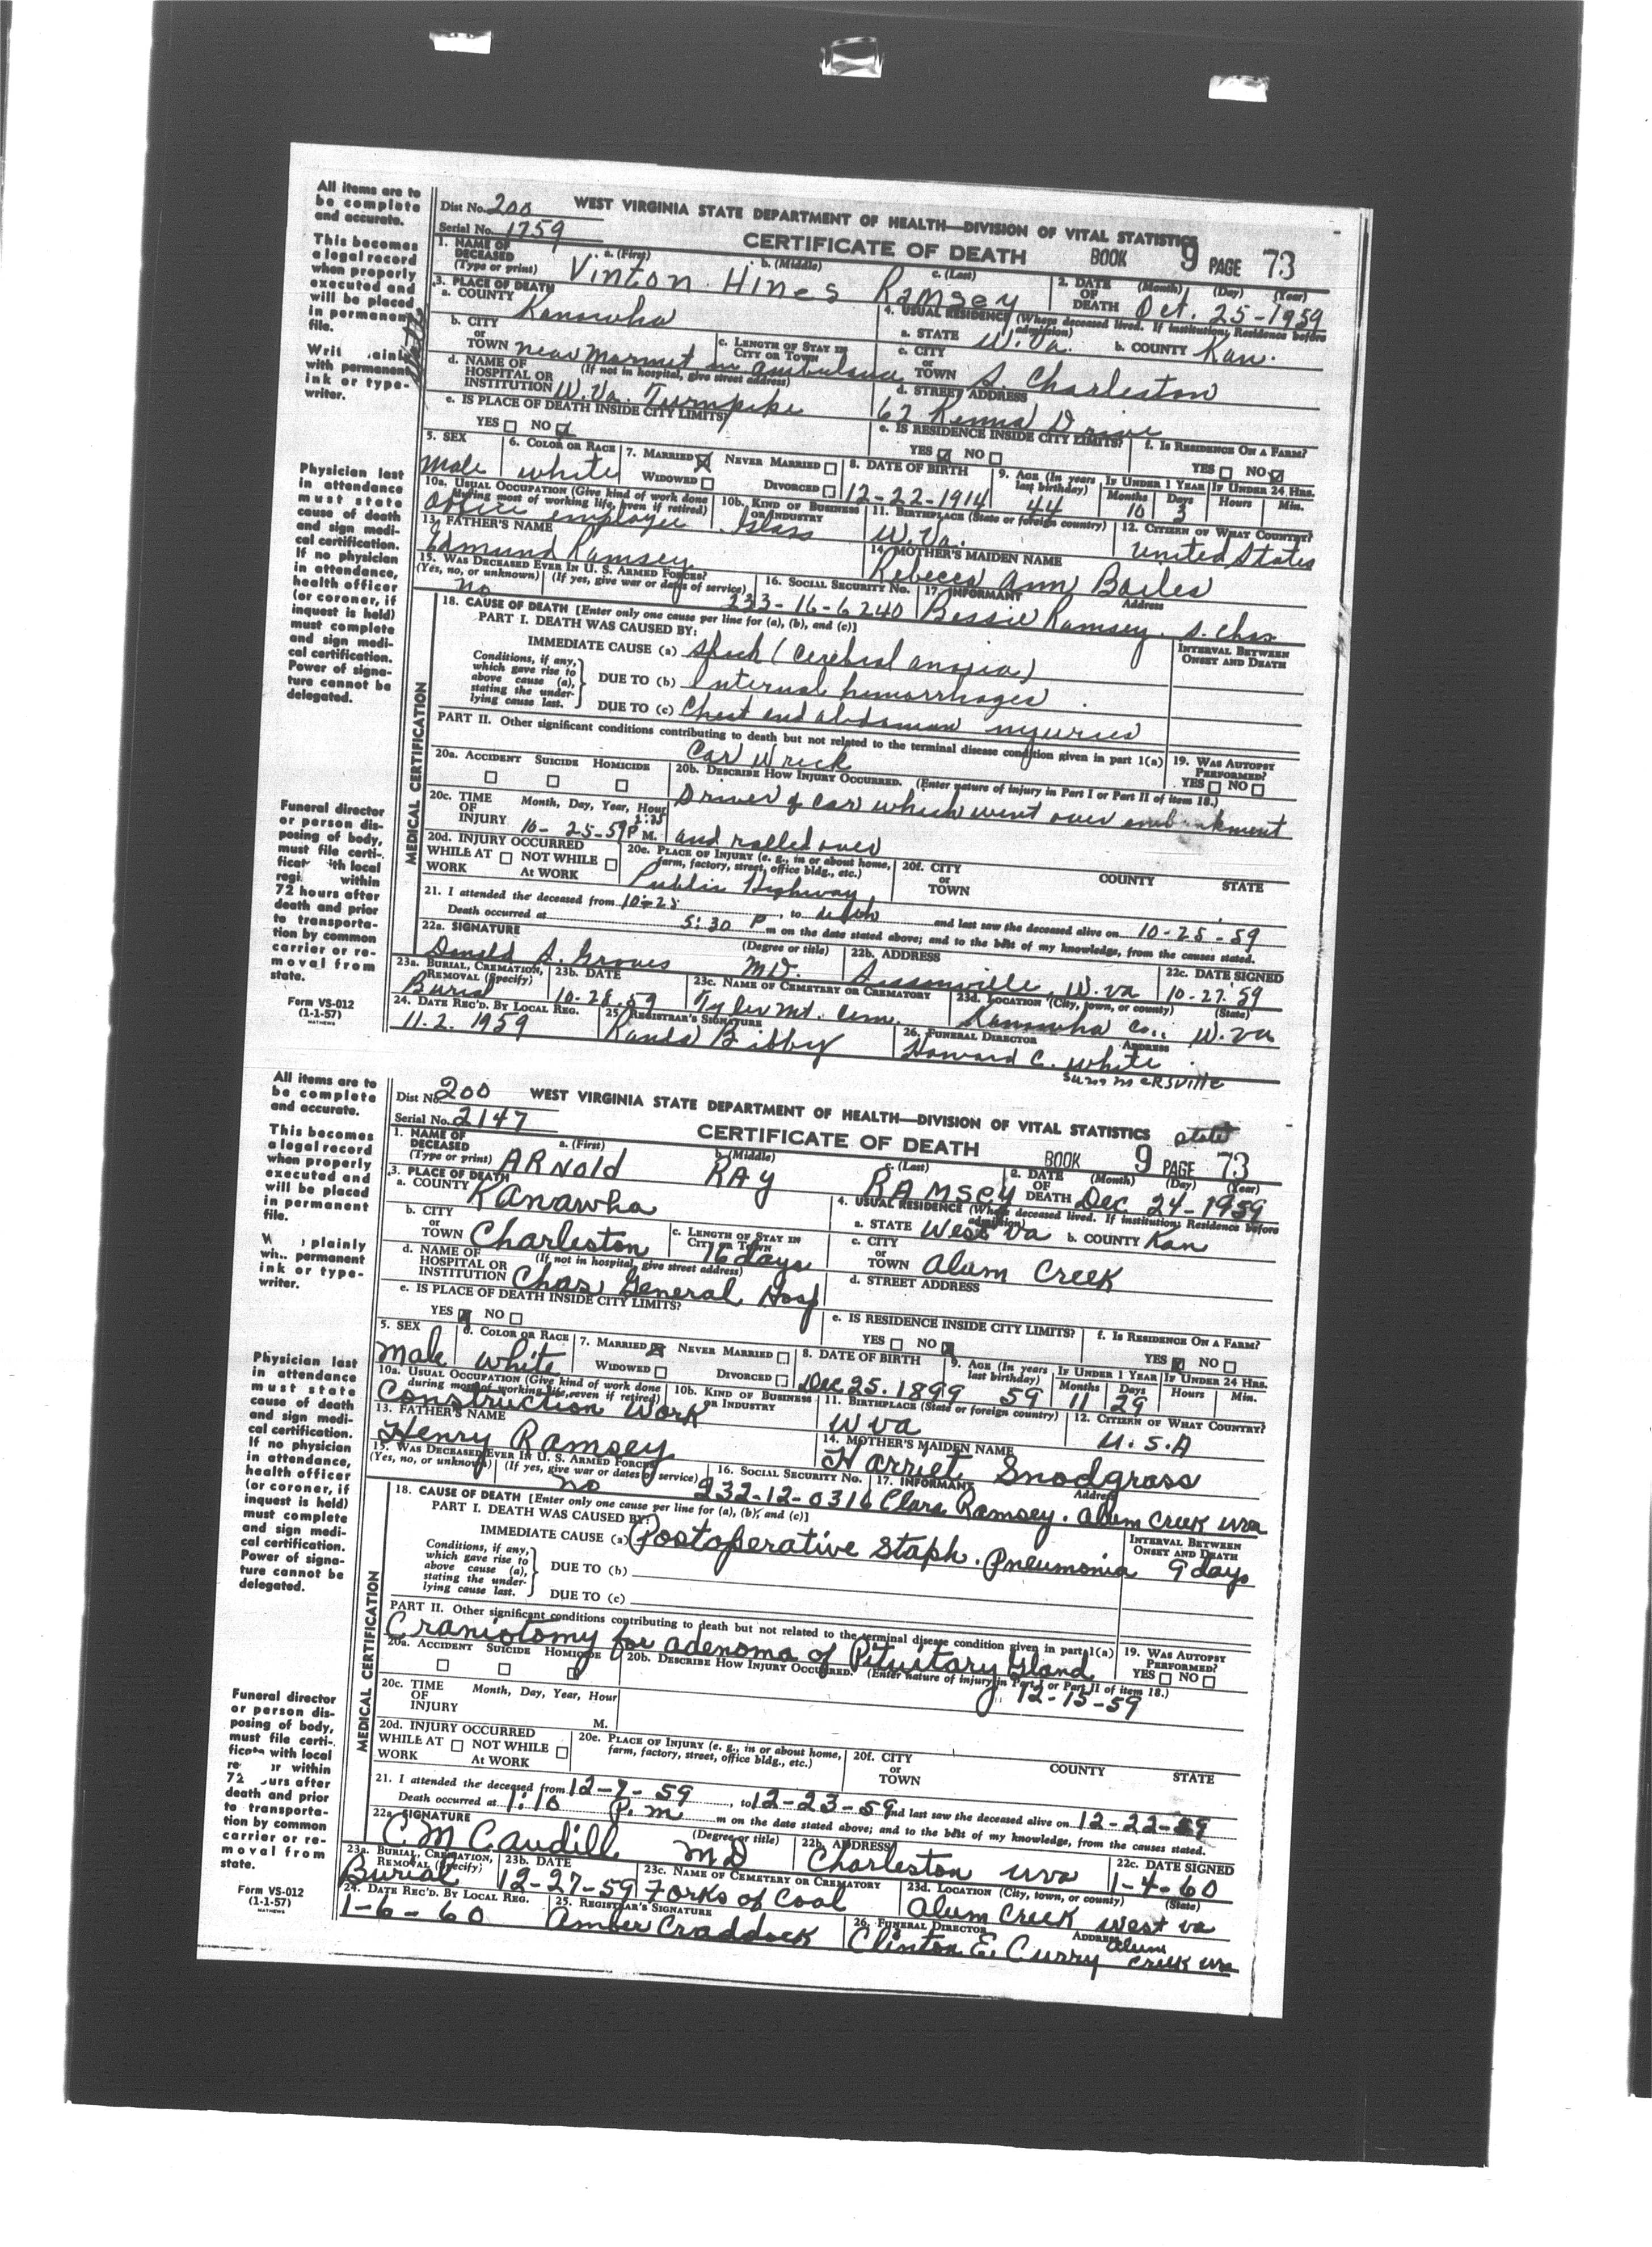 All items are to
be complete
and accurate.
This becomes
a legal record
when properly
executed and
will be placed
in permanent
file.
Writ ainly
with permanent
ink or type-
writer.
Physician last
in attendance
must state
cause of death
and sign medi-
cal certification.
If no physician
in attendance,
health officer
(or coroner, if
inquest is held)
must complete
and sign medi-
cal certification.
Power of signa-
ture cannot be
delegated.
Funeral director
or person dis-
posing of body,
must file certi-
ficat ith local
regi within
72 hours after
death and prior
to transporta-
tion by common
carrier or re-
moval from
state.
Form VS-012
(1-1-57)
MATHEWS
Dist No. 200 WEST VIRGINIA STATE DEPARTMENT OF HEALTH—DIVISION OF VITAL STATISTICS
Serial No. 1759 CERTIFICATE OF DEATH BOOK 9 PAGE 73
1. NAME OF DECEASED (Type or print) a. (First) Vinton b. (Middle) Hines c. (Last) Ramsey 2. DATE OF DEATH (Month) (Day) (Year) Oct. 25-1959
3. PLACE OF DEATH a. COUNTY Kanawha 4. USUAL RESIDENCE (Where deceased lived. If institution; Residence before admission) a. STATE W.Va. b. COUNTY Kan.
b. CITY or TOWN near Marmet in ambulance c. LENGTH OF STAY IN CITY OR TOWN c. CITY or TOWN S. Charleston
d. NAME OF HOSPITAL OR INSTITUTION (If not in hospital, give street address) W. Va. Turnpike d. STREET ADDRESS 62 Kenna Drive
e. IS PLACE OF DEATH INSIDE CITY LIMITS? YES NO e. IS RESIDENCE INSIDE CITY LIMITS? YES NO f. IS RESIDENCE ON A FARM? YES NO
5. SEX male 6. COLOR OR RACE white 7. MARRIED NEVER MARRIED WIDOWED DIVORCED 8. DATE OF BIRTH 12-22-1914 9. AGE (In years last birthday) 44 IF UNDER 1 YEAR Months 10 Days 3 IF UNDER 24 HRS. Hours Min.
10a. USUAL OCCUPATION (Give kind of work done during most of working life, even if retired) Office employee 10b. KIND OF BUSINESS OR INDUSTRY Glass 11. BIRTHPLACE (State or foreign country) W.Va. 12. CITIZEN OF WHAT COUNTRY? United States
13. FATHER'S NAME Edmund Ramsey 14. MOTHER'S MAIDEN NAME Rebecca Ann Bailes
15. WAS DECEASED EVER IN U. S. ARMED FORCES? (Yes, no, or unknown) (If yes, give war or dates of service) no 16. SOCIAL SECURITY NO. 233-16-6240 17. INFORMANT Address Bessie Ramsey. S. Chas
18. CAUSE OF DEATH [Enter only one cause per line for (a), (b), and (c)]
PART I. DEATH WAS CAUSED BY: INTERVAL BETWEEN ONSET AND DEATH
IMMEDIATE CAUSE (a) Shock (Cerebral anoxia)
Conditions, if any, which gave rise to above cause (a), stating the underlying cause last.
DUE TO (b) Internal hemorrhages
DUE TO (c) Chest and abdomen injuries
PART II. Other significant conditions contributing to death but not related to the terminal disease condition given in part 1(a) Car Wreck 19. WAS AUTOPSY PERFORMED? YES NO
20a. ACCIDENT SUICIDE HOMICIDE 20b. DESCRIBE HOW INJURY OCCURRED. (Enter nature of injury in Part I or Part II of item 18.)
Driver of car which went over embankment
and rolled over
20c. TIME OF INJURY Month, Day, Year, Hour 10-25-59 P M.
20d. INJURY OCCURRED WHILE AT WORK NOT WHILE AT WORK 20e. PLACE OF INJURY (e. g., in or about home, farm, factory, street, office bldg., etc.) Public Highway 20f. CITY or TOWN COUNTY STATE
21. I attended the deceased from 10-25, to death and last saw the deceased alive on 10-25-59
Death occurred at 5:30 P m on the date stated above; and to the best of my knowledge, from the causes stated.
22a. SIGNATURE Donald S. Groves (Degree or title) MD. 22b. ADDRESS Sissonville, W.Va 22c. DATE SIGNED 10-27-59
23a. BURIAL, CREMATION, REMOVAL (Specify) Burial 23b. DATE 10-28-59 23c. NAME OF CEMETERY OR CREMATORY Tyler Mt. Cem. 23d. LOCATION (City, town, or county) (State) Kanawha Co., W.Va
24. DATE REC'D. BY LOCAL REG. 11-2-1959 25. REGISTRAR'S SIGNATURE Bibby 26. FUNERAL DIRECTOR ADDRESS Howard C. White
Summersville
All items are to
be complete
and accurate.
This becomes
a legal record
when properly
executed and
will be placed
in permanent
file.
W plainly
wit. permanent
ink or type-
writer.
Physician last
in attendance
must state
cause of death
and sign medi-
cal certification.
If no physician
in attendance,
health officer
(or coroner, if
inquest is held)
must complete
and sign medi-
cal certification.
Power of signa-
ture cannot be
delegated.
Funeral director
or person dis-
posing of body,
must file certi-
ficate with local
re r within
72 urs after
death and prior
to transporta-
tion by common
carrier or re-
moval from
state.
Form VS-012
(1-1-57)
MATHEWS
Dist No. 200 WEST VIRGINIA STATE DEPARTMENT OF HEALTH—DIVISION OF VITAL STATISTICS state
Serial No. 2147 CERTIFICATE OF DEATH BOOK 9 PAGE 73
1. NAME OF DECEASED (Type or print) a. (First) ARNold b. (Middle) RAy c. (Last) RAMSey 2. DATE OF DEATH (Month) (Day) (Year) Dec. 24-1959
3. PLACE OF DEATH a. COUNTY Kanawha 4. USUAL RESIDENCE (Where deceased lived. If institution; Residence before admission) a. STATE West Va b. COUNTY Kan
b. CITY or TOWN Charleston c. LENGTH OF STAY IN CITY OR TOWN 16 days c. CITY or TOWN Alum Creek
d. NAME OF HOSPITAL OR INSTITUTION (If not in hospital, give street address) Chas General Hosp d. STREET ADDRESS
e. IS PLACE OF DEATH INSIDE CITY LIMITS? YES NO e. IS RESIDENCE INSIDE CITY LIMITS? YES NO f. IS RESIDENCE ON A FARM? YES NO
5. SEX Male 6. COLOR OR RACE white 7. MARRIED NEVER MARRIED WIDOWED DIVORCED 8. DATE OF BIRTH Dec 25. 1899 9. AGE (In years last birthday) 59 IF UNDER 1 YEAR Months 11 Days 29 IF UNDER 24 HRS. Hours Min.
10a. USUAL OCCUPATION (Give kind of work done during most of working life, even if retired) Construction Work 10b. KIND OF BUSINESS OR INDUSTRY 11. BIRTHPLACE (State or foreign country) W Va 12. CITIZEN OF WHAT COUNTRY? U.S.A
13. FATHER'S NAME Henry Ramsey 14. MOTHER'S MAIDEN NAME Harriet Snodgrass
15. WAS DECEASED EVER IN U. S. ARMED FORCES? (Yes, no, or unknown) (If yes, give war or dates of service) no 16. SOCIAL SECURITY NO. 232-12-0316 17. INFORMANT Address Clara Ramsey. Alum Creek Wva
18. CAUSE OF DEATH [Enter only one cause per line for (a), (b), and (c)]
PART I. DEATH WAS CAUSED BY: INTERVAL BETWEEN ONSET AND DEATH
IMMEDIATE CAUSE (a) Postoperative Staph. Pneumonia 9 days
Conditions, if any, which gave rise to above cause (a), stating the underlying cause last.
DUE TO (b)
DUE TO (c)
PART II. Other significant conditions contributing to death but not related to the terminal disease condition given in part 1(a) 19. WAS AUTOPSY PERFORMED? YES NO
Craniotomy for adenoma of Pituitary Gland
20a. ACCIDENT SUICIDE HOMICIDE 20b. DESCRIBE HOW INJURY OCCURRED. (Enter nature of injury in Part I or Part II of item 18.)
12-15-59
20c. TIME OF INJURY Month, Day, Year, Hour M.
20d. INJURY OCCURRED WHILE AT WORK NOT WHILE AT WORK 20e. PLACE OF INJURY (e. g., in or about home, farm, factory, street, office bldg., etc.) 20f. CITY or TOWN COUNTY STATE
21. I attended the deceased from 12-7-59, to 12-23-59 and last saw the deceased alive on 12-22-59
Death occurred at 1:10 P.m m on the date stated above; and to the best of my knowledge, from the causes stated.
22a. SIGNATURE C M Caudill (Degree or title) MD 22b. ADDRESS Charleston Wva 22c. DATE SIGNED 1-4-60
23a. BURIAL, CREMATION, REMOVAL (Specify) Burial 23b. DATE 12-27-59 23c. NAME OF CEMETERY OR CREMATORY Forks of Coal 23d. LOCATION (City, town, or county) (State) Alum Creek West Va
24. DATE REC'D. BY LOCAL REG. 1-6-60 25. REGISTRAR'S SIGNATURE Amber Craddock 26. FUNERAL DIRECTOR ADDRESS Clinton E. Curry Alum Creek Wva